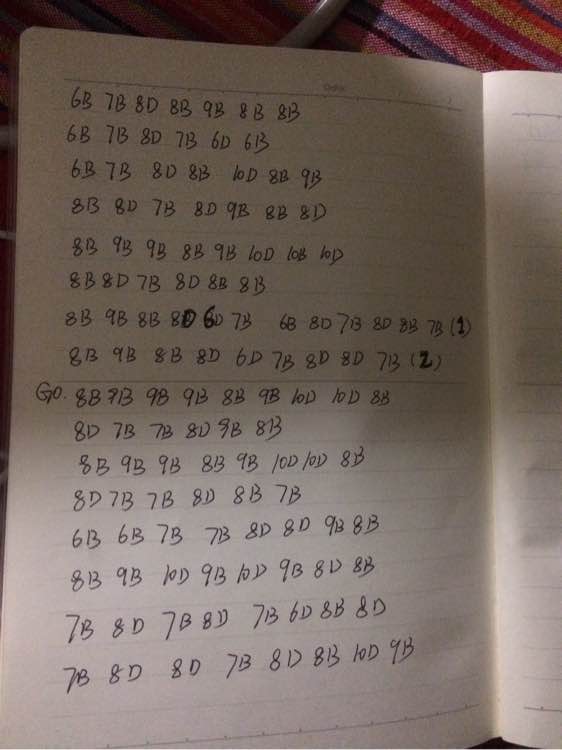 Date
6B 7B 8D 8B 9B 8B 8B
6B 7B 8D 7B 6D 6B
6B 7B 8D 8B 10D 8B 9B
8B 8D 7B 8D 9B 8B 8D
8B 9B 9B 8B 9B 10D 10B 10D
8B 8D 7B 8D 8B 8B
8B 9B 8B 8D 6D 7B 6B 8D 7B 8D 8B 7B (1)
8B 9B 8B 8D 6D 7B 8D 8D 7B (2)
GO. 8B 9B 9B 9B 8B 9B 10D 10D 8B
8D 7B 7B 8D 9B 8B
8B 9B 9B 8B 9B 10D 10D 8B
8D 7B 7B 8D 8B 7B
6B 6B 7B 7B 8D 8D 9B 8B
8B 9B 10D 9B 10D 9B 8D 8B
7B 8D 7B 8D 7B 6D 8B 8D
7B 8D 8D 7B 8D 8B 10D 9B